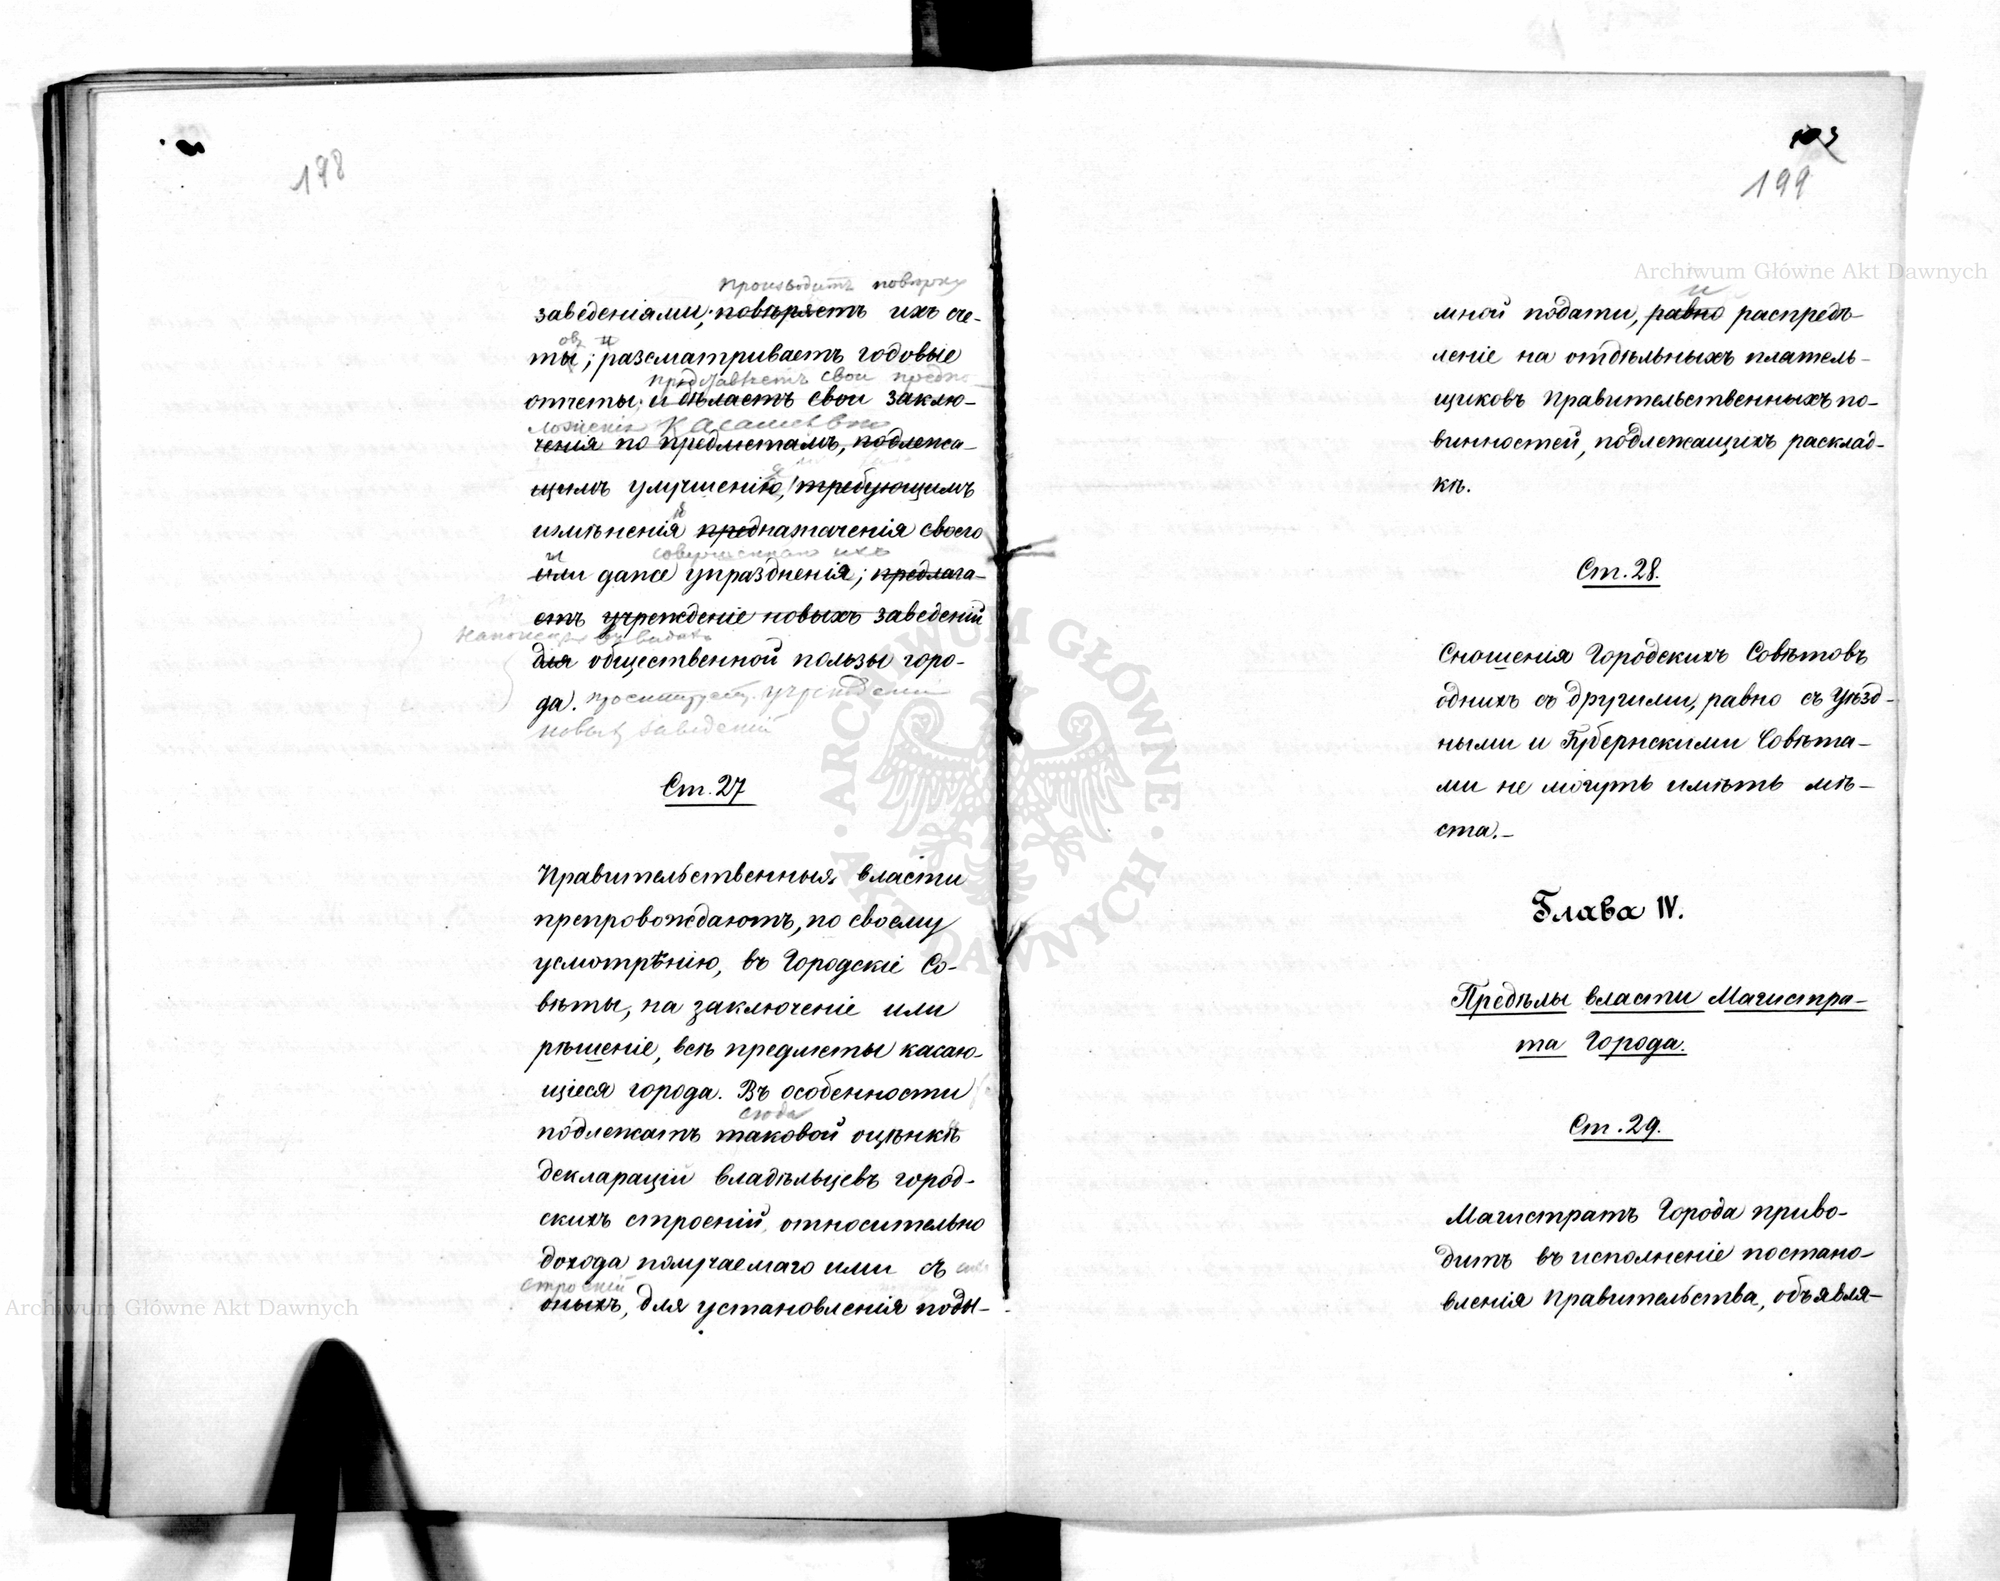 198
производитъ повѣрку
заведеніями; повѣряетъ ихъ сче-
овъ и
ты; разсматриваетъ годовые
представляетъ свои предпо-
отчеты; и дѣлаетъ свои заклю-
ложенія касательно
ченія по предметамъ, подлежа-
щимъ улучшенію, требующимъ
измѣненія предназначенія своего
и совершеннаго ихъ
или даже упраздненія; предлага-
етъ учрежденіе новыхъ заведеній
наконецъ въ видахъ
для общественной пользы горо-
да. учрежденіи
новыхъ заведеній
Ст. 27
Правительственныя власти
препровождаютъ, по своему
усмотрѣнію, въ Городскіе Со-
вѣты, на заключеніе или
рѣшеніе, всѣ предметы касаю-
щіеся города. Въ особенности
сюда
подлежатъ таковой оцѣнкѣ
декларацій владѣльцевъ город-
скихъ строеній, относительно
дохода получаемаго ими съ
строеній
оныхъ, для установленія поды-
199
Archiwum Główne Akt Dawnych
и
мной подати, равно распредѣ-
леніе на отдѣльныхъ платель-
щиковъ Правительственныхъ по-
винностей, подлежащихъ расклад-
кѣ.
Ст. 28.
Сношенія Городскихъ Совѣтовъ
однихъ съ другими, равно съ Уѣзд-
ными и Губернскими Совѣта-
ми не могутъ имѣть мѣ-
ста.-
Глава IV.
Предѣлы власти Магистра-
та Города.
Ст. 29.
Магистратъ Города приво-
дитъ въ исполненіе постано-
вленія Правительства, объявля-
ARCHIWUM GŁÓWNE AKT DAWNYCH
Archiwum Główne Akt Dawnych